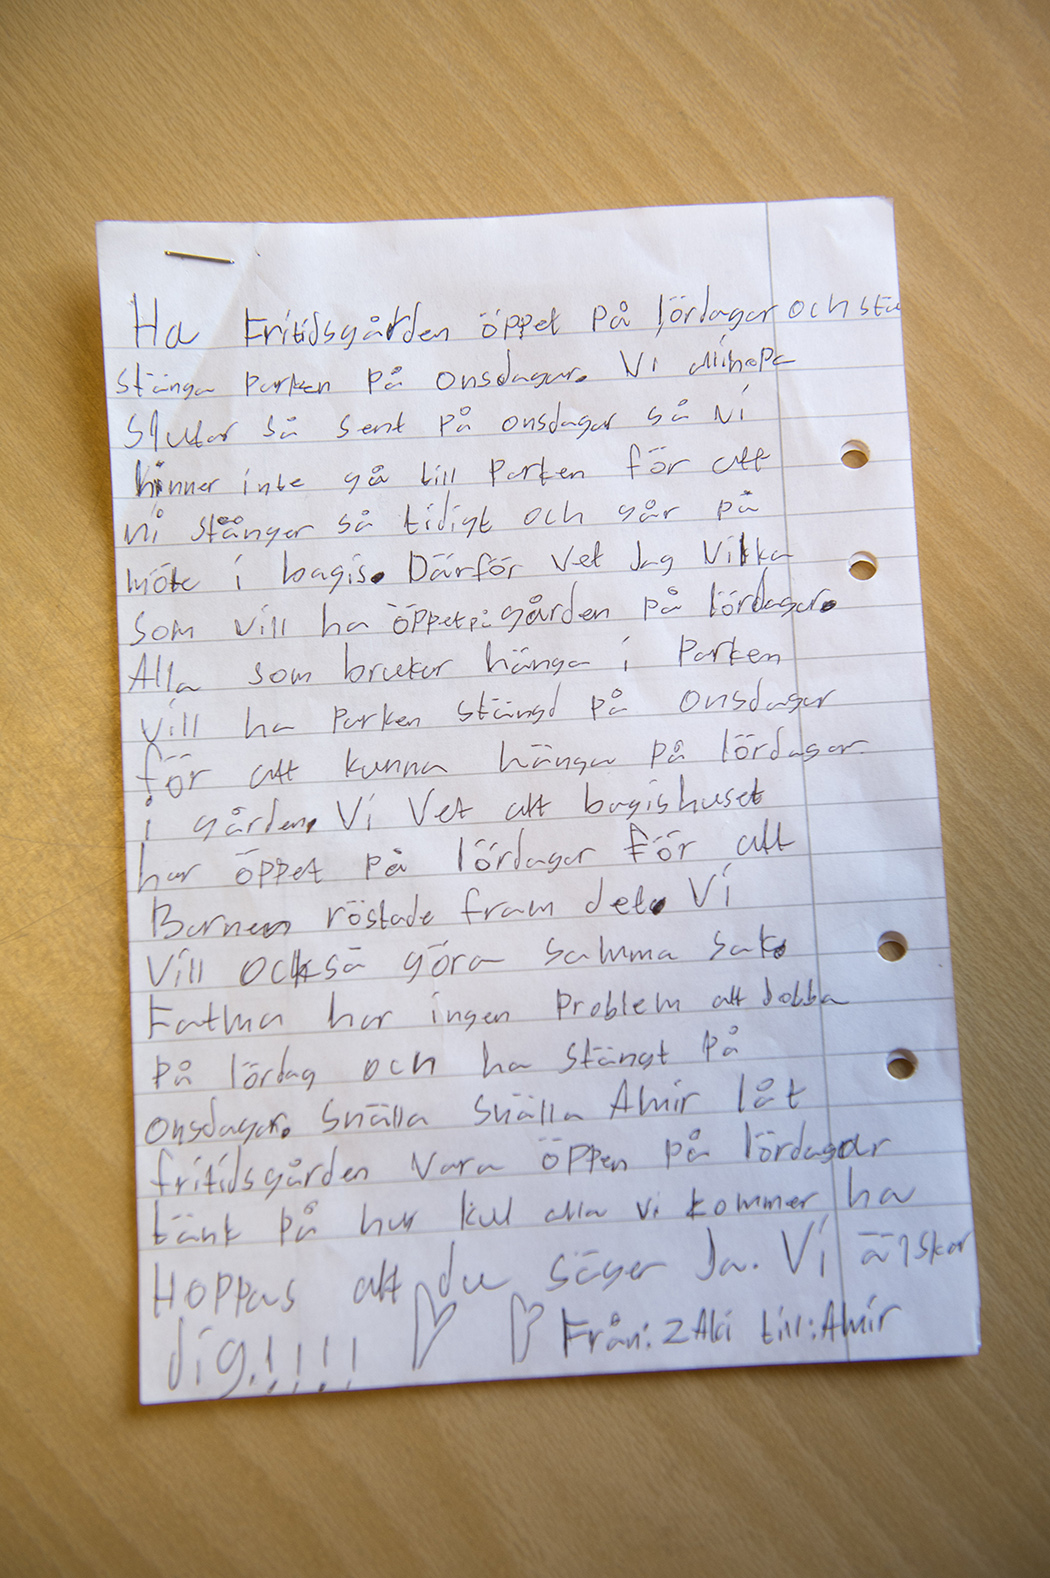 Ha Fritidsgården öppet på lördagar och stä
stänga parken på onsdagar. Vi allihopa
slutar så sent på onsdagar så vi
hinner inte gå till parken för att
ni stänger så tidigt och går på
möte i bagis. Därför vet Jag vilka
som vill ha öppet på gården på lördagar.
Alla som brukar hänga i parken
vill ha parken stängd på onsdagar
för att kunna hänga på lördagar
i gården. Vi vet att bagishuset
har öppet på lördagar för att
Barnen röstade fram det. Vi
vill också göra samma sak.
Fatma har ingen problem att jobba
på lördag och ha stängt på
onsdagar. Snälla snälla Amir låt
fritidsgården vara öppen på lördagar
tänk på hur kul alla vi kommer ha
Hoppas att du säger Ja. Vi älskar
dig!!!!! Från: ZAki till: Amir